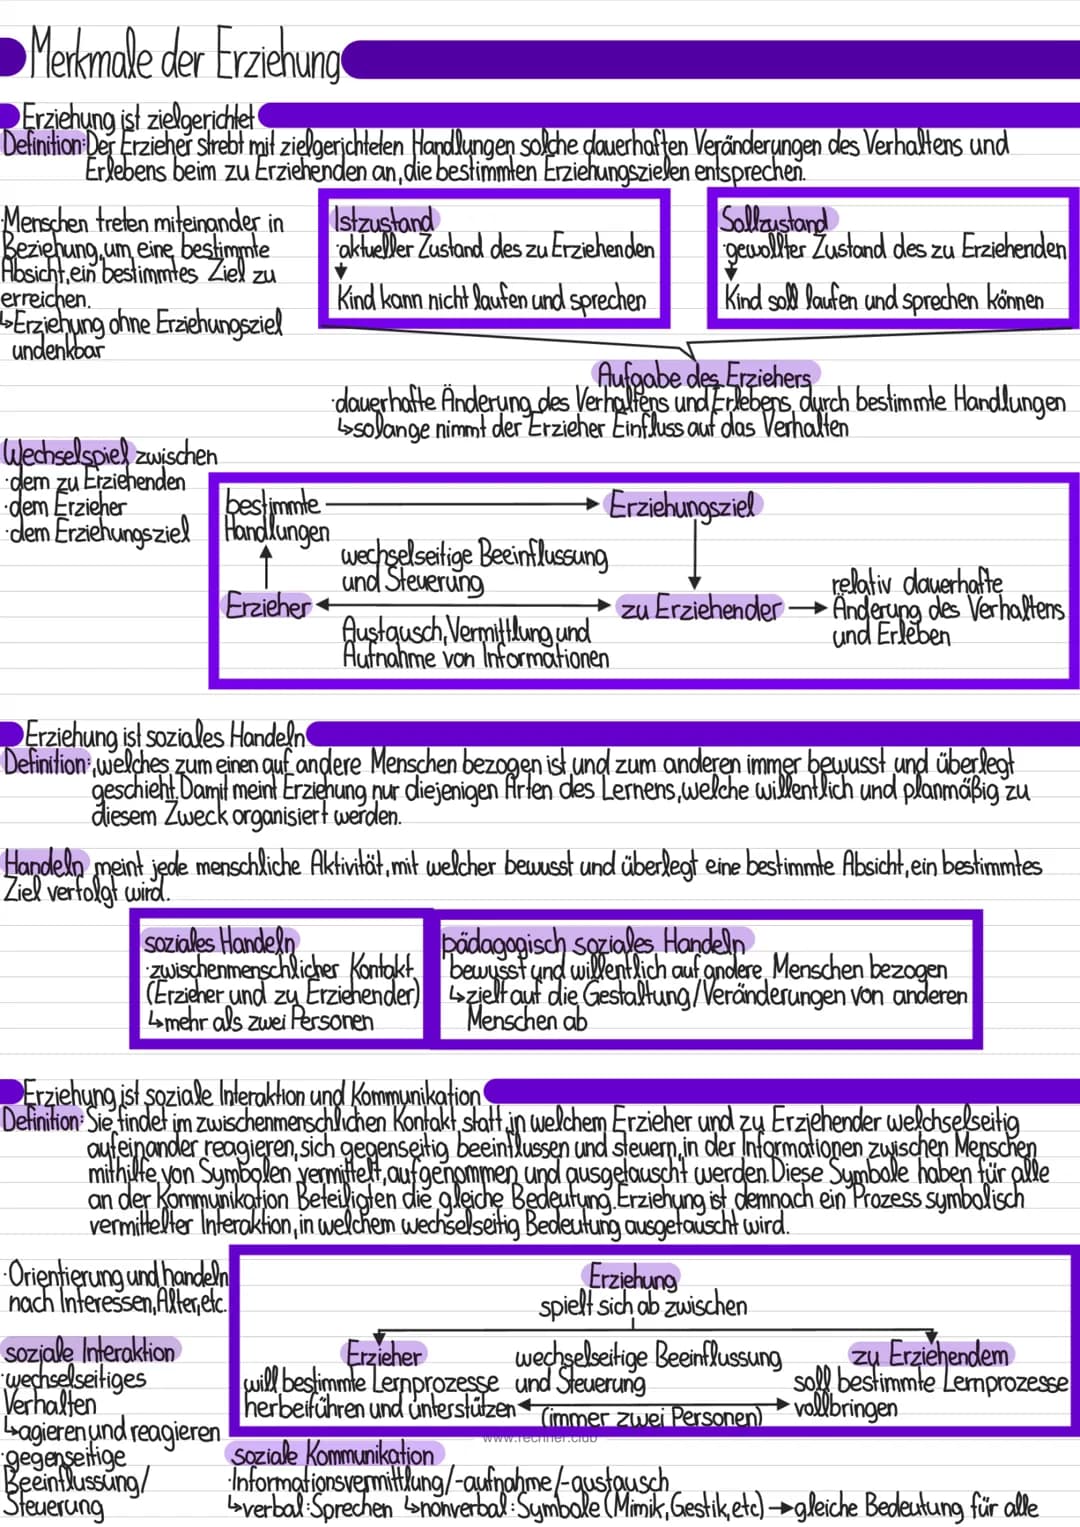 Merkmale der Erziehung
Erziehung ist zielgerichtet
Definition: Der Erzieher strebt mit zielgerichteten Handlungen solche dauerhaften Veränderungen des Verhaltens und
Erlebens beim zu Erziehenden an, die bestimmten Erziehungszielen entsprechen.
Menschen treten miteinander in
Beziehung, um eine bestimmte
Absicht, ein bestimmtes Ziel zu
erreichen.
↳Erziehung ohne Erziehungsziel
undenkbar
Istzustand
·aktueller Zustand des zu Erziehenden
↓
Kind kann nicht laufen und sprechen
Sollzustand
·gewollter Zustand des zu Erziehenden
↓
Kind soll laufen und sprechen können
Aufgabe des Erziehers
·dauerhafte Änderung des Verhaltens und Erlebens durch bestimmte Handlungen
↳solange nimmt der Erzieher Einfluss auf das Verhalten
Wechselspiel zwischen
·dem zu Erziehenden
·dem Erzieher
·dem Erziehungsziel
bestimmte
Handlungen
Erziehungsziel
wechselseitige Beeinflussung
und Steuerung
Erzieher
zu Erziehender
relativ dauerhafte
Änderung des Verhaltens
und Erleben
Austausch, Vermittlung und
Aufnahme von Informationen
Erziehung ist soziales Handeln
Definition: , welches zum einen auf andere Menschen bezogen ist und zum anderen immer bewusst und überlegt
geschieht. Damit meint Erziehung nur diejenigen Arten des Lernens, welche willentlich und planmäßig zu
diesem Zweck organisiert werden.
Handeln meint jede menschliche Aktivität, mit welcher bewusst und überlegt eine bestimmte Absicht, ein bestimmtes
Ziel verfolgt wird.
soziales Handeln
·zwischenmenschlicher Kontakt
(Erzieher und zu Erziehender)
↳mehr als zwei Personen
pädagogisch soziales Handeln
bewusst und willentlich auf andere Menschen bezogen
↳zielt auf die Gestaltung/Veränderungen von anderen
Menschen ab
Erziehung ist soziale Interaktion und Kommunikation
Definition: Sie findet im zwischenmenschlichen Kontakt statt, in welchem Erzieher und zu Erziehender welchselseitig
aufeinander reagieren, sich gegenseitig beeinflussen und steuern, in der Informationen zwischen Menschen
mithilfe von Symbolen vermittelt, aufgenommen und ausgetauscht werden. Diese Symbole haben für alle
an der Kommunikation Beteiligten die gleiche Bedeutung. Erziehung ist demnach ein Prozess symbolisch
vermittelter Interaktion, in welchem wechselseitig Bedeutung ausgetauscht wird.
·Orientierung und handeln
nach Interessen, Alter, etc.
soziale Interaktion
·wechselseitiges
Verhalten
↳agieren und reagieren
·gegenseitige
Beeinflussung/
Steuerung
Erziehung
spielt sich ab zwischen
Erzieher
will bestimmte Lernprozesse
herbeiführen und unterstützen
wechselseitige Beeinflussung
und Steuerung
(immer zwei Personen)
zu Erziehendem
soll bestimmte Lernprozesse
vollbringen
www.rechner.club
soziale Kommunikation
·Informationsvermittlung/-aufnahme/-austausch
↳verbal: Sprechen ↳nonverbal: Symbole (Mimik, Gestik, etc) → gleiche Bedeutung für alle